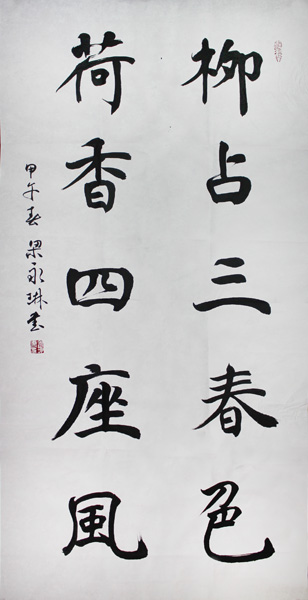 柳占三春色
荷香四座風
甲午春梁永琳書